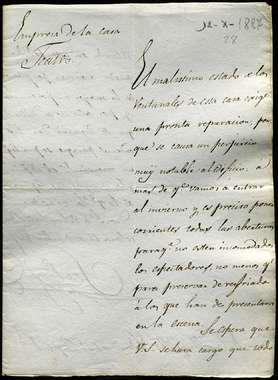 Empresa de la casa
Teatro
12-X-1882
28
El malissimo estado de los
ventanales de esta casa exige
una pronta reparacion, por
que se causa un perjuicio
muy notable al edificio. a
mas de qe vamos a entrar
al invierno y es preciso poner
corrientes todas las aberturas
paraqe no esten incomodados
los espectadores, no menos qe
para preservar de resfriado
á los que han de presentarse
en la escena. Se espera que
V.S. se hara cargo que todo